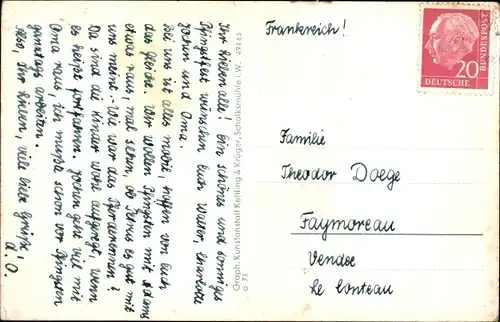 Ihr Lieben alle! Ein schönes und sonniges
Pfingstfest wünschen Euch Walter,
Jochen und Oma.
Bei uns ist alles mobil, hoffen von Euch
das Gleiche. Wir wollen Pfingsten mit Adams
etwas raus, mal sehen, ob Petrus es gut mit
uns meint. - Wie war das Pferderennen?
Da sind die Kinder wohl aufgeregt, wenn
es heißt fortfahren. Jochen geht viel mit
Oma raus, ich mußte schon vor Pfingsten
ganztags arbeiten.
Also, Ihr Lieben, viele liebe Grüße,
d. O.
Graph. Kunstanstalt Kettling & Krüger, Schalksmühle i.W. 49263
o 73
Frankreich!
20
DEUTSCHE
BUNDESPOST
Familie
Theodor Doege
Faymoreau
Vendee
Le Conteau